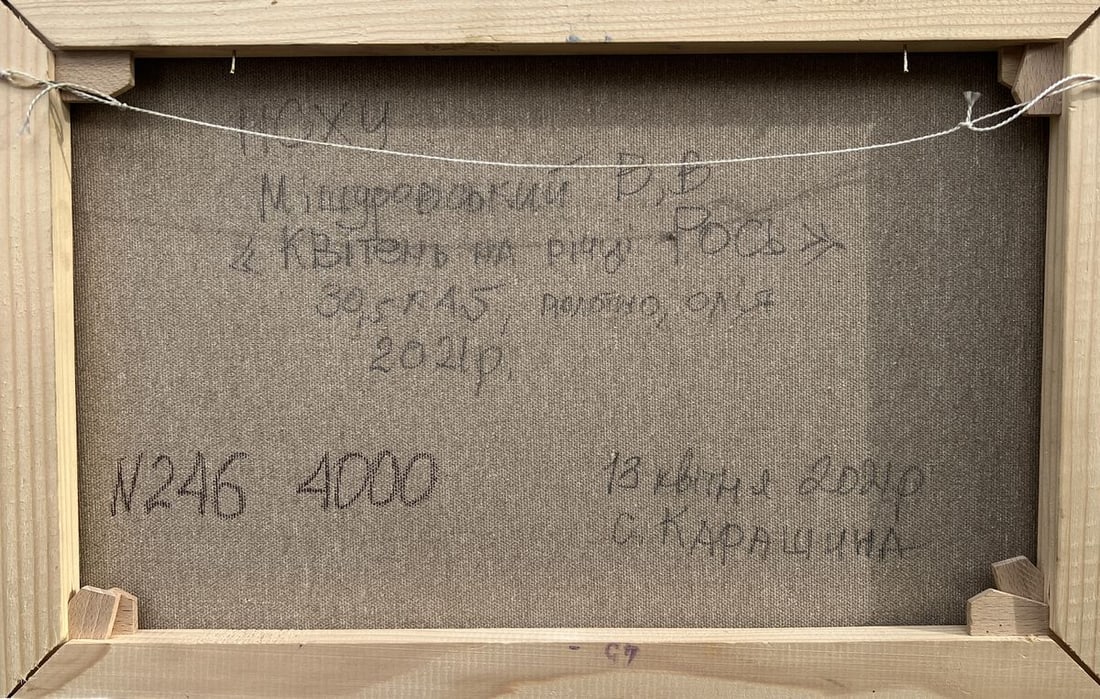 НСХУ
Мішуровський В,В
« Квітень на річці Рось»
30,5х45, полотно, олія
2021р.
N246 4000
13 квітня 2021р
с. Карашина